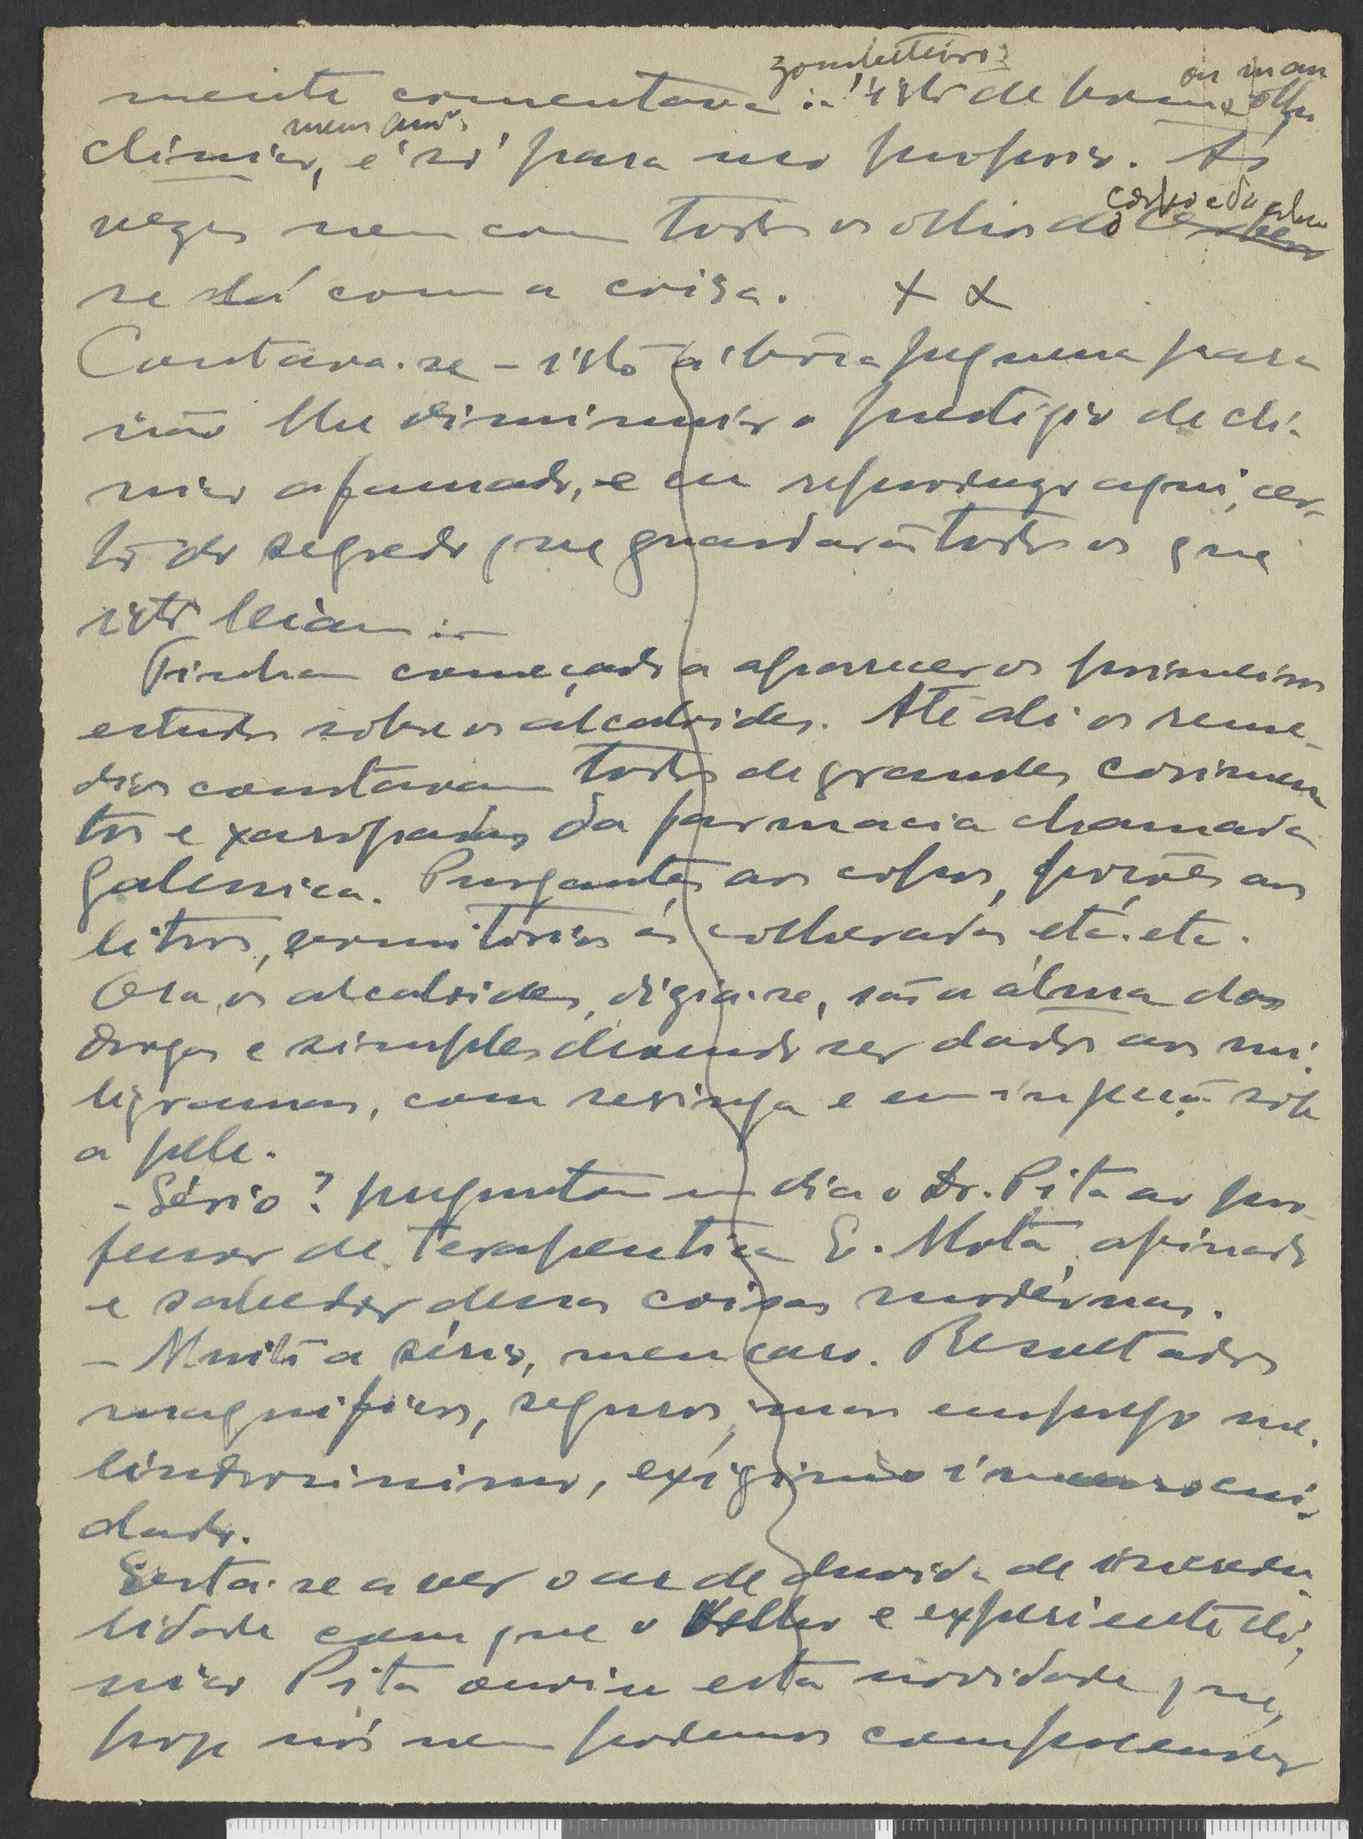 zombeteiro:
ou mau
mente comentava: "isto de bom olho
meus amos
clinico, é só para uso proprio. Ás
corpo e da alma
vezes nem com todos os olhos do
se dá com a coisa. x x
Contava-se – isto á bôca pequena para
não lhe diminuir o prestigio de cli-
nico afamado, e eu reproduzo aqui, cer-
to do segredo que guardarão todos os que
isto leiam:–
Tinham começado a aparecer os primeiros
estudos sobre os alcaloides. Até ali os reme-
dios constavam todos de grandes cosimen
tos e xaropadas da farmacia chamada
Galenica. Purgantes aos copos, poções aos
litros, vomitorios ás colheradas etc. etc.
Ora, os alcaloides, dizia-se, são a álma das
drogas e simples devendo ser dados aos mi-
ligramas, com seringa e em injeção sob
a pele.
– Sério? preguntou um dia o Dr. Pita ao pro-
fessor de terapeutica E. Mota, afinado
e sabedor dessas coisas modérnas.
– Muito a sério, meu caro. Resultados
magnificos, seguros, mas emprego me-
lindrosissimo, exigindo imenso cui-
dado.
Está-se a ver o ar de duvida de incredu-
lidade com que o velho e experiente cli-
nico Pita ouviu esta novidade que,
hoje nós nem podemos compreender